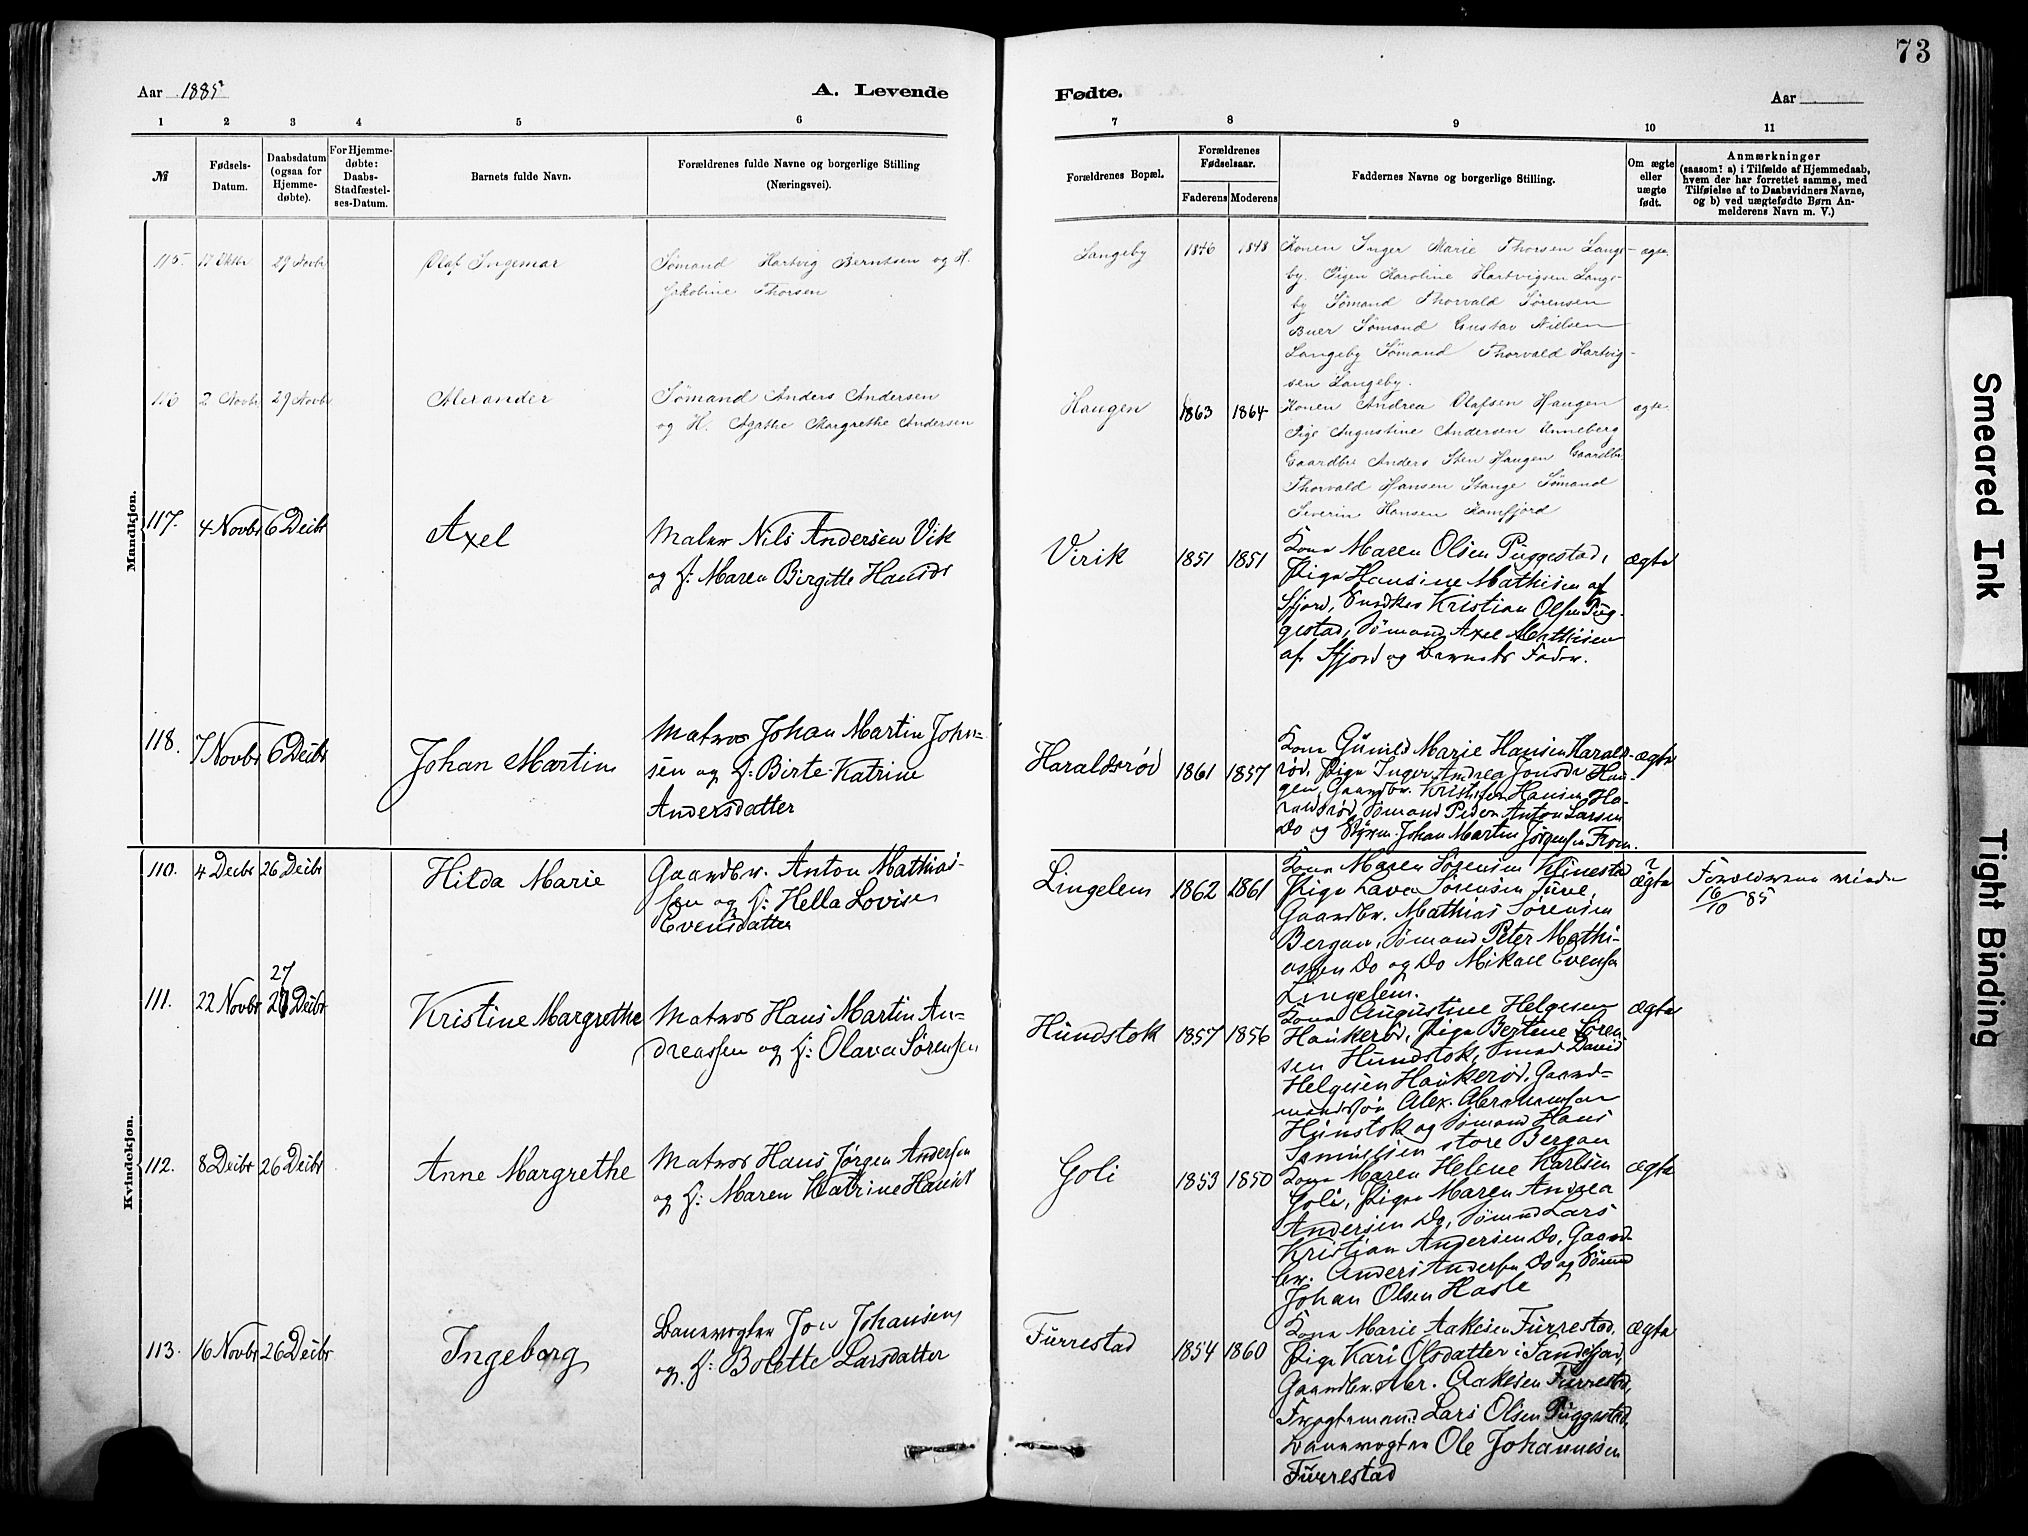 73
Aar 1885
A. Levende
Fødte.
Aar
1 2 3 4 5 6 7 8 9 10 11
№
Fødsels-
Datum.
Daabsdatum
(ogsaa for
Hjemme-
døbte).
For Hjemme-
døbte:
Daabs-
Stadfæstel-
ses-Datum.
Barnets fulde Navn.
Forældrenes fulde Navne og borgerlige Stilling
(Næringsvei).
Forældrenes Bopæl.
Forældrenes
Fødselsaar.
Faderens Moderens
Faddernes Navne og borgerlige Stilling.
Om ægte
eller
uægte
født.
Anmærkninger
(saasom: a) i Tilfælde af Hjemmedaab,
hvem der har forrettet samme, med
Tilføielse af to Daabsvidners Navne,
og b) ved uægtefødte Børn An-
melderens Navn m. V.)
Mandkjøn.
115. 29 Novbr
Olaf Ingemar
Sømand Hartvig Berntsen og H.
Jakobine Thorsen
Langeby
1846 1848
Konen Inger Marie Thorsen Lange-
by. Pigen Karoline Hartvigsen Lange-
by Sømand Thorvald Sørensen
Buer Sømand Gustav Nielsen
Langeby Sømand Thorvald Hartvig-
sen Langeby.
ægte.
116 2 Novbr 29 Novbr
Alexander
Sømand Anders Andersen
og H. Agathe Margrethe Andersen
Haugen
1863 1864
Konen Andrea Olafsen Haugen
Pige Augustine Andersen Unneberg
Gaardbr Anders Sten Haugen Gaardbr
Thorvald Hansen Stange Sømand
Severin Hansen Kamfjord
ægte.
117. 4 Novbr 6 Decbr
Axel
Maler Nils Andersen Vik
og H: Maren Birgitte Hansdr
Virik
1851 1851
Kone Maren Olsen Puggestad,
Pige Hansine Mathisen af
Sfjord, Kristian Olsen Pug-
gestad, Sømand Axel Mathisen
af Sfjord og Barnets Fader.
ægte
118. 7 Novbr 6 Decbr
Johan Martin
Matros Johan Martin Johan-
sen og H: Birte Katrine
Andersdatter
Haraldsrød
1861 1857
Kone Gunild Marie Hansen Haralds-
rød, Pige Inger Andrea Jonsdr Hau-
gen, Gaardbr. Kristofer Hansen Ha-
raldsrød, Sømand Peder Anton Larsen
Do og Styrm. Johan Martin Jørgensen Fram.
ægte
Kvindekjøn.
110. 4 Decbr 26 Decbr
Hilda Marie
Gaardbr. Anton Mathias-
sen og H: Hella Lovise
Evensdatter
Lingelem
1862 1861
Kone Maren Sørensen Klinestad
Pige Lava Sørensen Juve,
Gaardbr. Mathias Sørensen
Bergan, Sømand Peter Mathi-
assen Do og Do Mikael Evensen
Lingelem.
?
ægte
Forældrene viede
16/10 85
111. 22 Novbr
27
Decbr
Kristine Margrethe
Matros Hans Martin An-
dreassen og H: Olava Sørensen
Hundstok
1857 1856
Kone Augustine Helgesen
Haukerød, Pige Bertine Søren
sen Hundstok, Smed David
Helgesen Haukerød, Gaard-
mandssøn Alex. Abrahamsen
Hunstok og Sømand Hans
Samuelsen store Bergan
ægte
112. 8 Decbr 26 Decbr
Anne Margrethe
Matros Hans Jørgen Andersen
og H: Maren Katrine Hansdr
Goli
1853 1850
Kone Maren Helene Karlsen
Goli, Pige Maren Andrea
Andersen Do, Sømand Lars
Kristian Andersen Do, Gaard-
br. Anders Andersen Do og Sømand
Johan Olsen Hasle
ægte
113. 16 Novbr 26 Decbr
Ingeborg
Banevogter Jon Johansen
og H: Bolette Larsdatter
Furrestad
1854 1860
Kone Marie Aakesen Furrestad,
Pige Kari Olsdatter i Sandefjord,
Gaardbr. Abr. Aakesen Furrestad,
Fragtemand Lars Olsen Puggestad,
Banevogter Ole Johannesen
Furrestad
ægte
Smeared Ink
Tight Binding